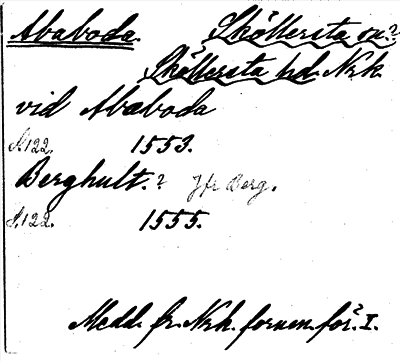 Ababoda. Sköllersta sn?
Sköllersta hd. Nrk.
vid Ababoda
S.122. 1553.
Berghult.? Jfr Berg.
S.122. 1555.
Medd. fr. Nrk. fornm. för. I.